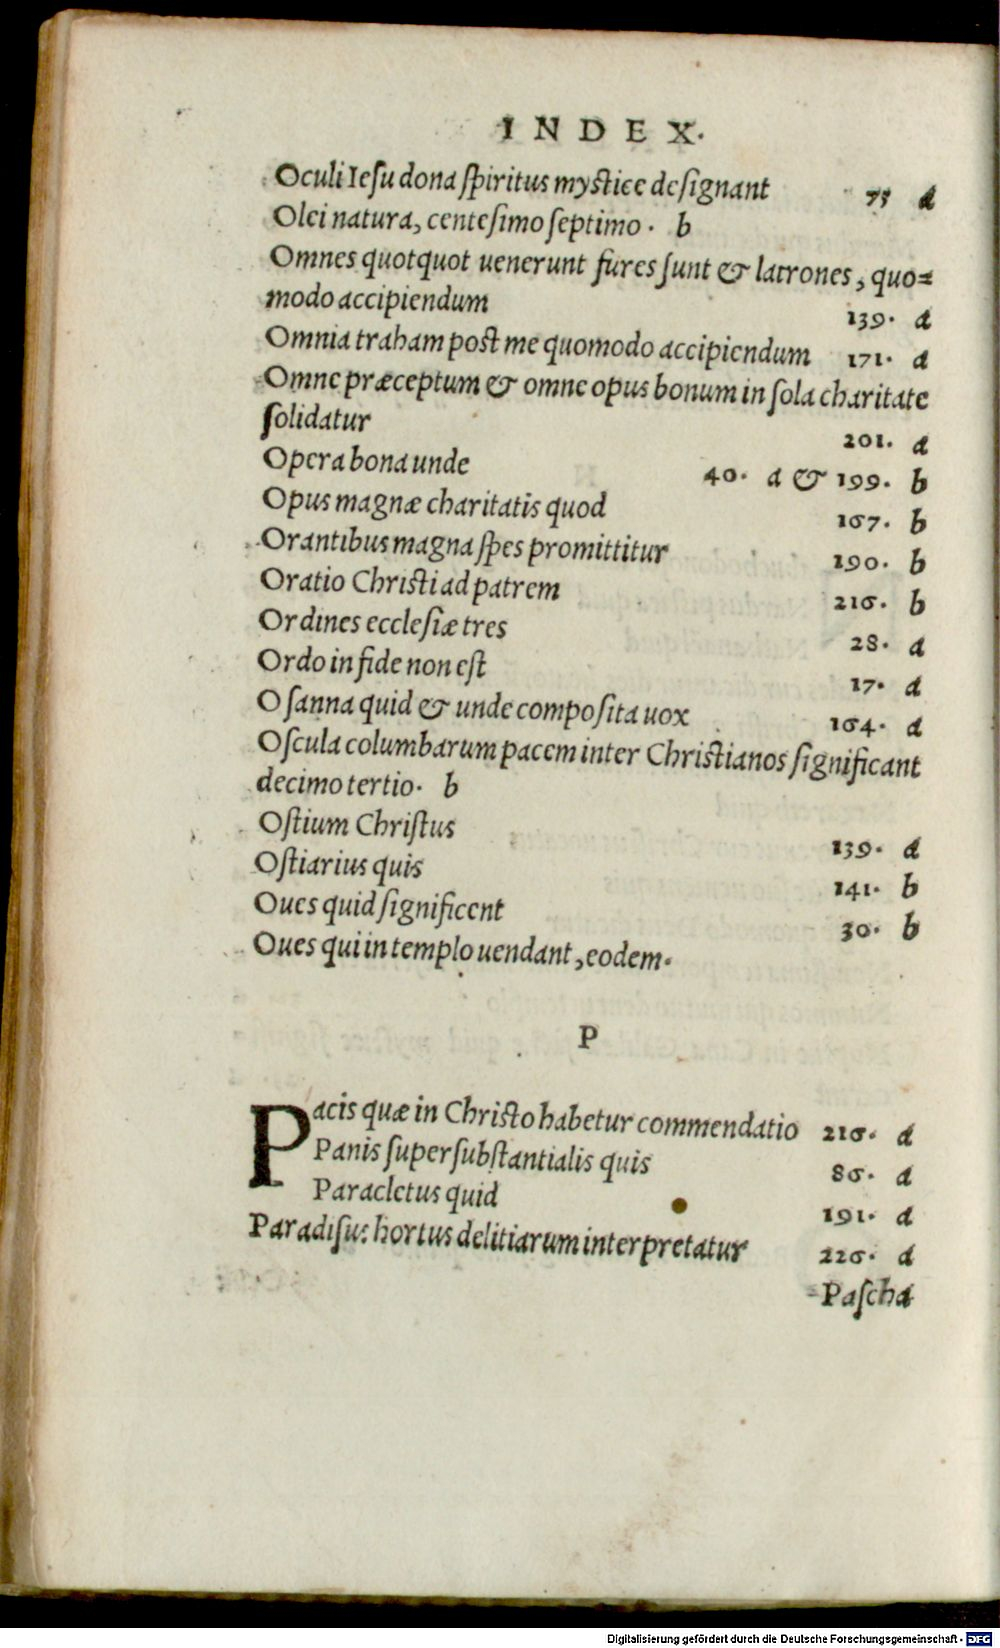 INDEX.
Oculi Ieſu dona ſpiritus myſtice deſignant 75 a
Olei natura, centeſimo ſeptimo. b
Omnes quotquot uenerunt fures ſunt & latrones, quo=
modo accipiendum 139. a
Omnia traham poſt me quomodo accipiendum 171. a
Omne præceptum & omne opus bonum in ſola charitate
ſolidatur 201. a
Opera bona unde 40. a & 199. b
Opus magnæ charitatis quod 167. b
Orantibus magna ſpes promittitur 190. b
Oratio Chriſti ad patrem 216. b
Ordines eccleſiæ tres 28. a
Ordo in fide non eſt 17. a
Oſanna quid & unde compoſita uox 164. a
Oſcula columbarum pacem inter Chriſtianos ſignificant
decimo tertio. b
Oſtium Chriſtus 139. a
Oſtiarius quis 141. b
Oues quid ſignificent 30. b
Oues qui in templo uendant, eodem.
P
Pacis quæ in Chriſto habetur commendatio 216. a
Panis ſuperſubſtantialis quis 86. a
Paracletus quid 191. a
Paradiſus hortus delitiarum interpretatur 226. a
Paſcha
Digitalisierung gefördert durch die Deutsche Forschungsgemeinschaft - DFG